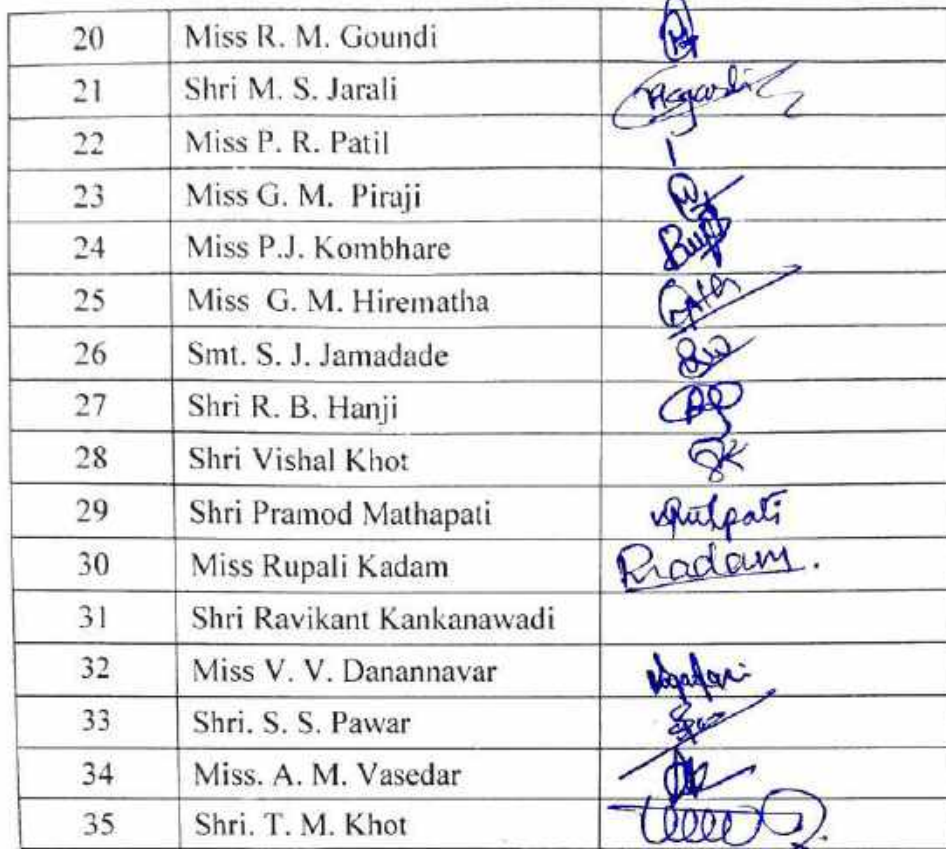 20 Miss R. M. Goundi
21 Shri M. S. Jarali
22 Miss P. R. Patil
23 Miss G. M. Piraji
24 Miss P.J. Kombhare
25 Miss G. M. Hirematha
26 Smt. S. J. Jamadade
27 Shri R. B. Hanji
28 Shri Vishal Khot
29 Shri Pramod Mathapati
30 Miss Rupali Kadam Rkadam.
31 Shri Ravikant Kankanawadi
32 Miss V. V. Danannavar
33 Shri. S. S. Pawar
34 Miss. A. M. Vasedar
35 Shri. T. M. Khot